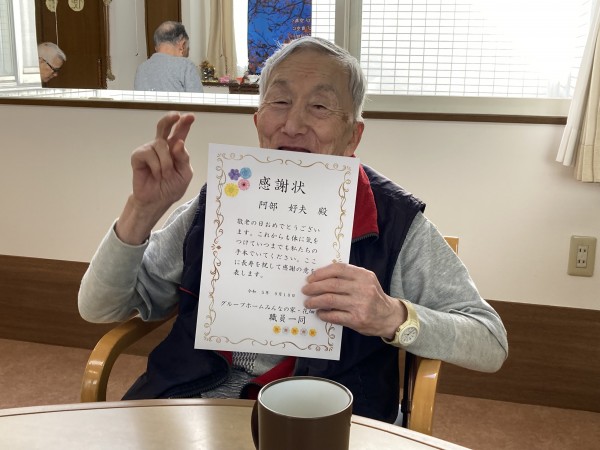 感謝状
阿部 好夫 殿
敬老の日おめでとうござい
ます。これからも体に気を
つけていつまでも私たちの
手本でいてください。ここ
に長寿を祝して感謝の意を
表します。
グループホームみんなの家・花畑
職員一同